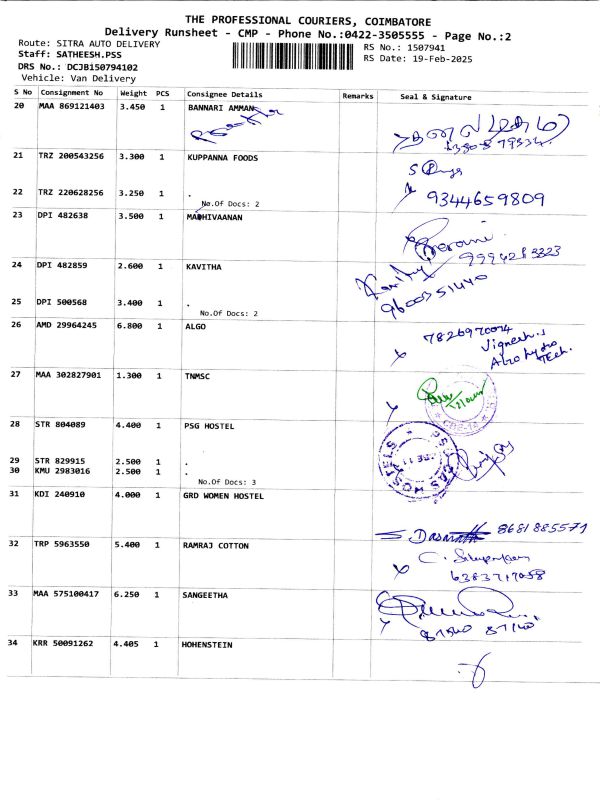 THE PROFESSIONAL COURIERS, COIMBATORE
Delivery Runsheet - CMP - Phone No.:0422-3505555 - Page No.:2
Route: SITRA AUTO DELIVERY
RS No.: 1507941
Staff: SATHEESH.PSS
RS Date: 19-Feb-2025
DRS No.: DCJB150794102
Vehicle: Van Delivery
S No Consignment No Weight PCS Consignee Details Remarks Seal & Signature
20 MAA 869121403 3.450 1 BANNARI AMMAN
21 TRZ 200543256 3.300 1 KUPPANNA FOODS
22 TRZ 220628256 3.250 1 . 9344659809
No.Of Docs: 2
23 DPI 482638 3.500 1 MADHIVAANAN
24 DPI 482859 2.600 1 KAVITHA
9600351440
25 DPI 500568 3.400 1 .
No.Of Docs: 2
26 AMD 29964245 6.800 1 ALGO
Vignesh.s
27 MAA 302827901 1.300 1 TNMSC
28 STR 804089 4.400 1 PSG HOSTEL
29 STR 829915 2.500 1 .
30 KMU 2983016 2.500 1 .
No.Of Docs: 3
31 KDI 240910 4.000 1 GRD WOMEN HOSTEL
S. Dasarath 8681885571
32 TRP 5963550 5.400 1 RAMRAJ COTTON
33 MAA 575100417 6.250 1 SANGEETHA
34 KRR 50091262 4.405 1 HOHENSTEIN